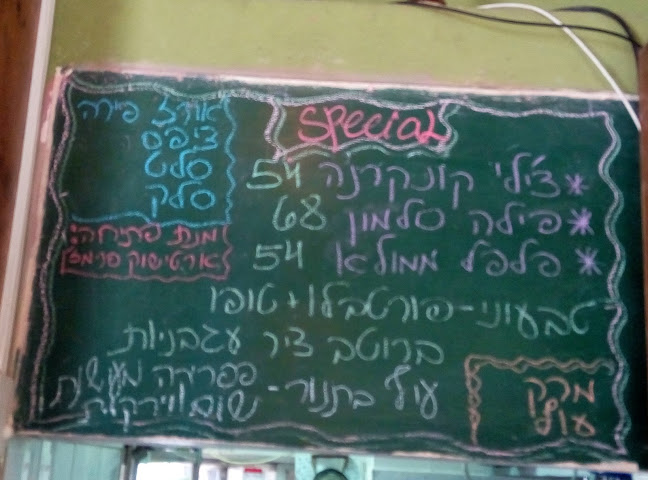 אורז פירה
ציפס
סלט
סלק
מנת פתיחה:
ארטישוק פרמז'
special
*צ'ילי קונקרנה 54
*פילה סלמון 68
*פלפל ממולא 54
טבעוני-פורטבלו+טופו
ברוטב ציר עגבניות
עוף בתנור- פפריקה מעושנת
שום וירקות
מרק
עוף